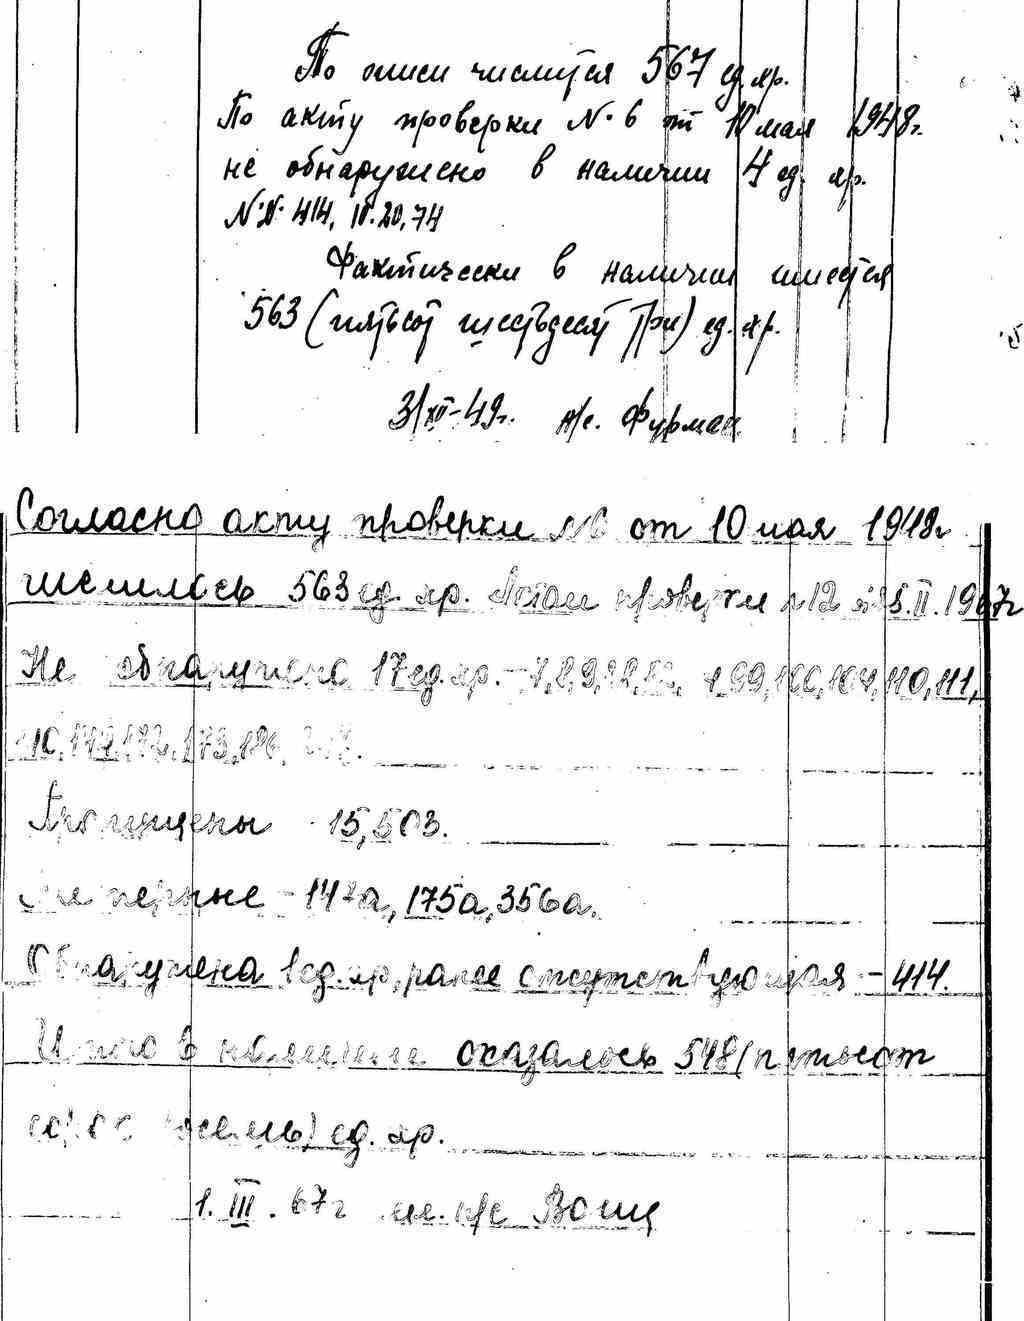 По описи числится 567 ед. хр.
По акту проверки № 6 от 10 мая 1948 г.
не обнаружено в наличии 4 ед. хр.
№№ 414, 20, 74
Фактически в наличии имеется
563 (пятьсот шестьдесят три) ед. хр.
3/XII-49г. н/с. Фурман
Согласно акту проверки №6 от 10 мая 1948г
числилось 563 ед. хр. Актом проверки №12 II. 1967г
Не обнаружено 17 ед. хр. - 199, 100, 104, 110, 111,
173,
Пропущены 15, 503.
Литерные - 147а, 175а, 356а.
Обнаружена 1 ед. хр, ранее отсутствующая - 414.
Итого в наличии оказалось 548 (пятьсот
сорок восемь) ед. хр.
1. III. 67г мл. н/с